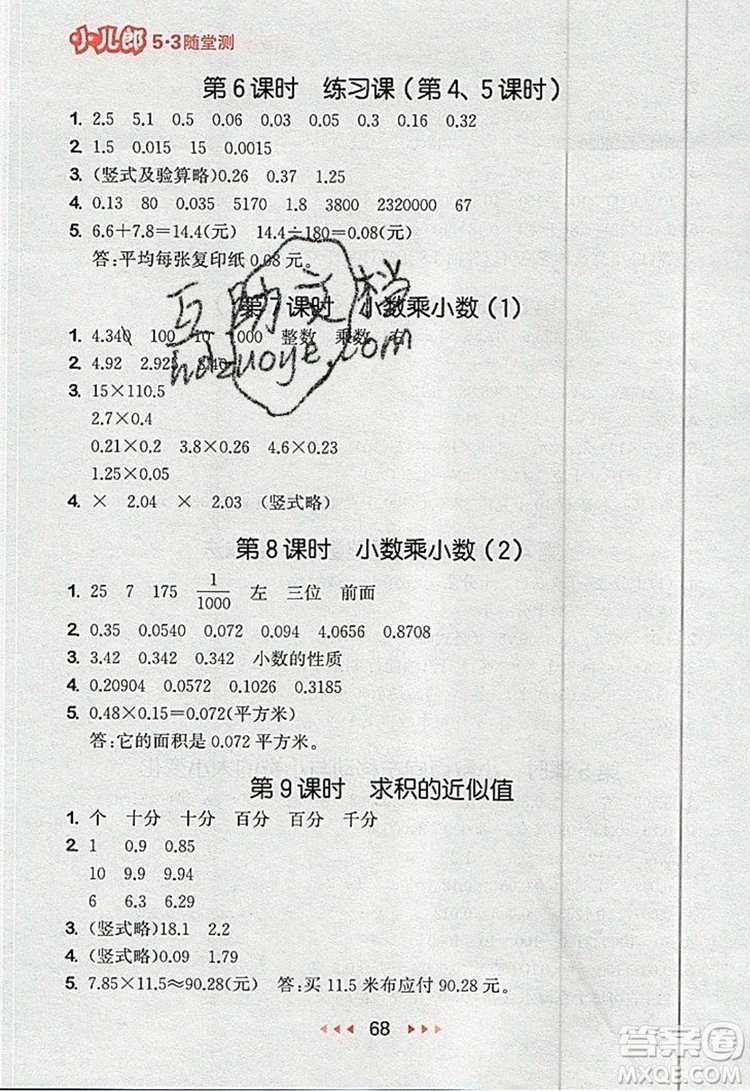 小儿郎 5·3随堂测
第6课时 练习课(第4、5课时)
1. 2.5 5.1 0.5 0.06 0.03 0.05 0.3 0.16 0.32
2. 1.5 0.015 15 0.0015
3. (竖式及验算略)0.26 0.37 1.25
4. 0.13 80 0.035 5170 1.8 3800 2320000 67
5. 6.6+7.8=14.4(元) 14.4÷180=0.08(元)
答:平均每张复印纸0.08元。
第7课时 小数乘小数(1)
1. 4.340 100 10 1000 整数 乘数 右
2. 4.92 2.925
3. 15×110.5
2.7×0.4
0.21×0.2 3.8×0.26 4.6×0.23
1.25×0.05
4. × 2.04 × 2.03 (竖式略)
互助文档
hdzuoye.com
第8课时 小数乘小数(2)
1. 25 7 175 1/1000 左 三位 前面
2. 0.35 0.0540 0.072 0.094 4.0656 0.8708
3. 3.42 0.342 0.342 小数的性质
4. 0.20904 0.0572 0.1026 0.3185
5. 0.48×0.15=0.072(平方米)
答:它的面积是0.072平方米。
第9课时 求积的近似值
1. 个 十分 十分 百分 百分 千分
2. 1 0.9 0.85
10 9.9 9.94
6 6.3 6.29
3. (竖式略)18.1 2.2
4. (竖式略)0.09 1.79
5. 7.85×11.5≈90.28(元) 答:买11.5米布应付90.28元。
68
答案圈
MXQE.COM